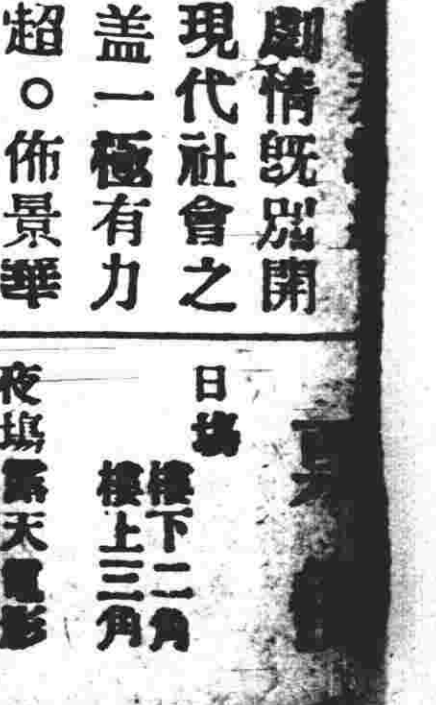 劇情旣別開
現代社會之
盖一極有力
超。佈景華
日塲
樓下二角
樓上三角
夜塲露天電影